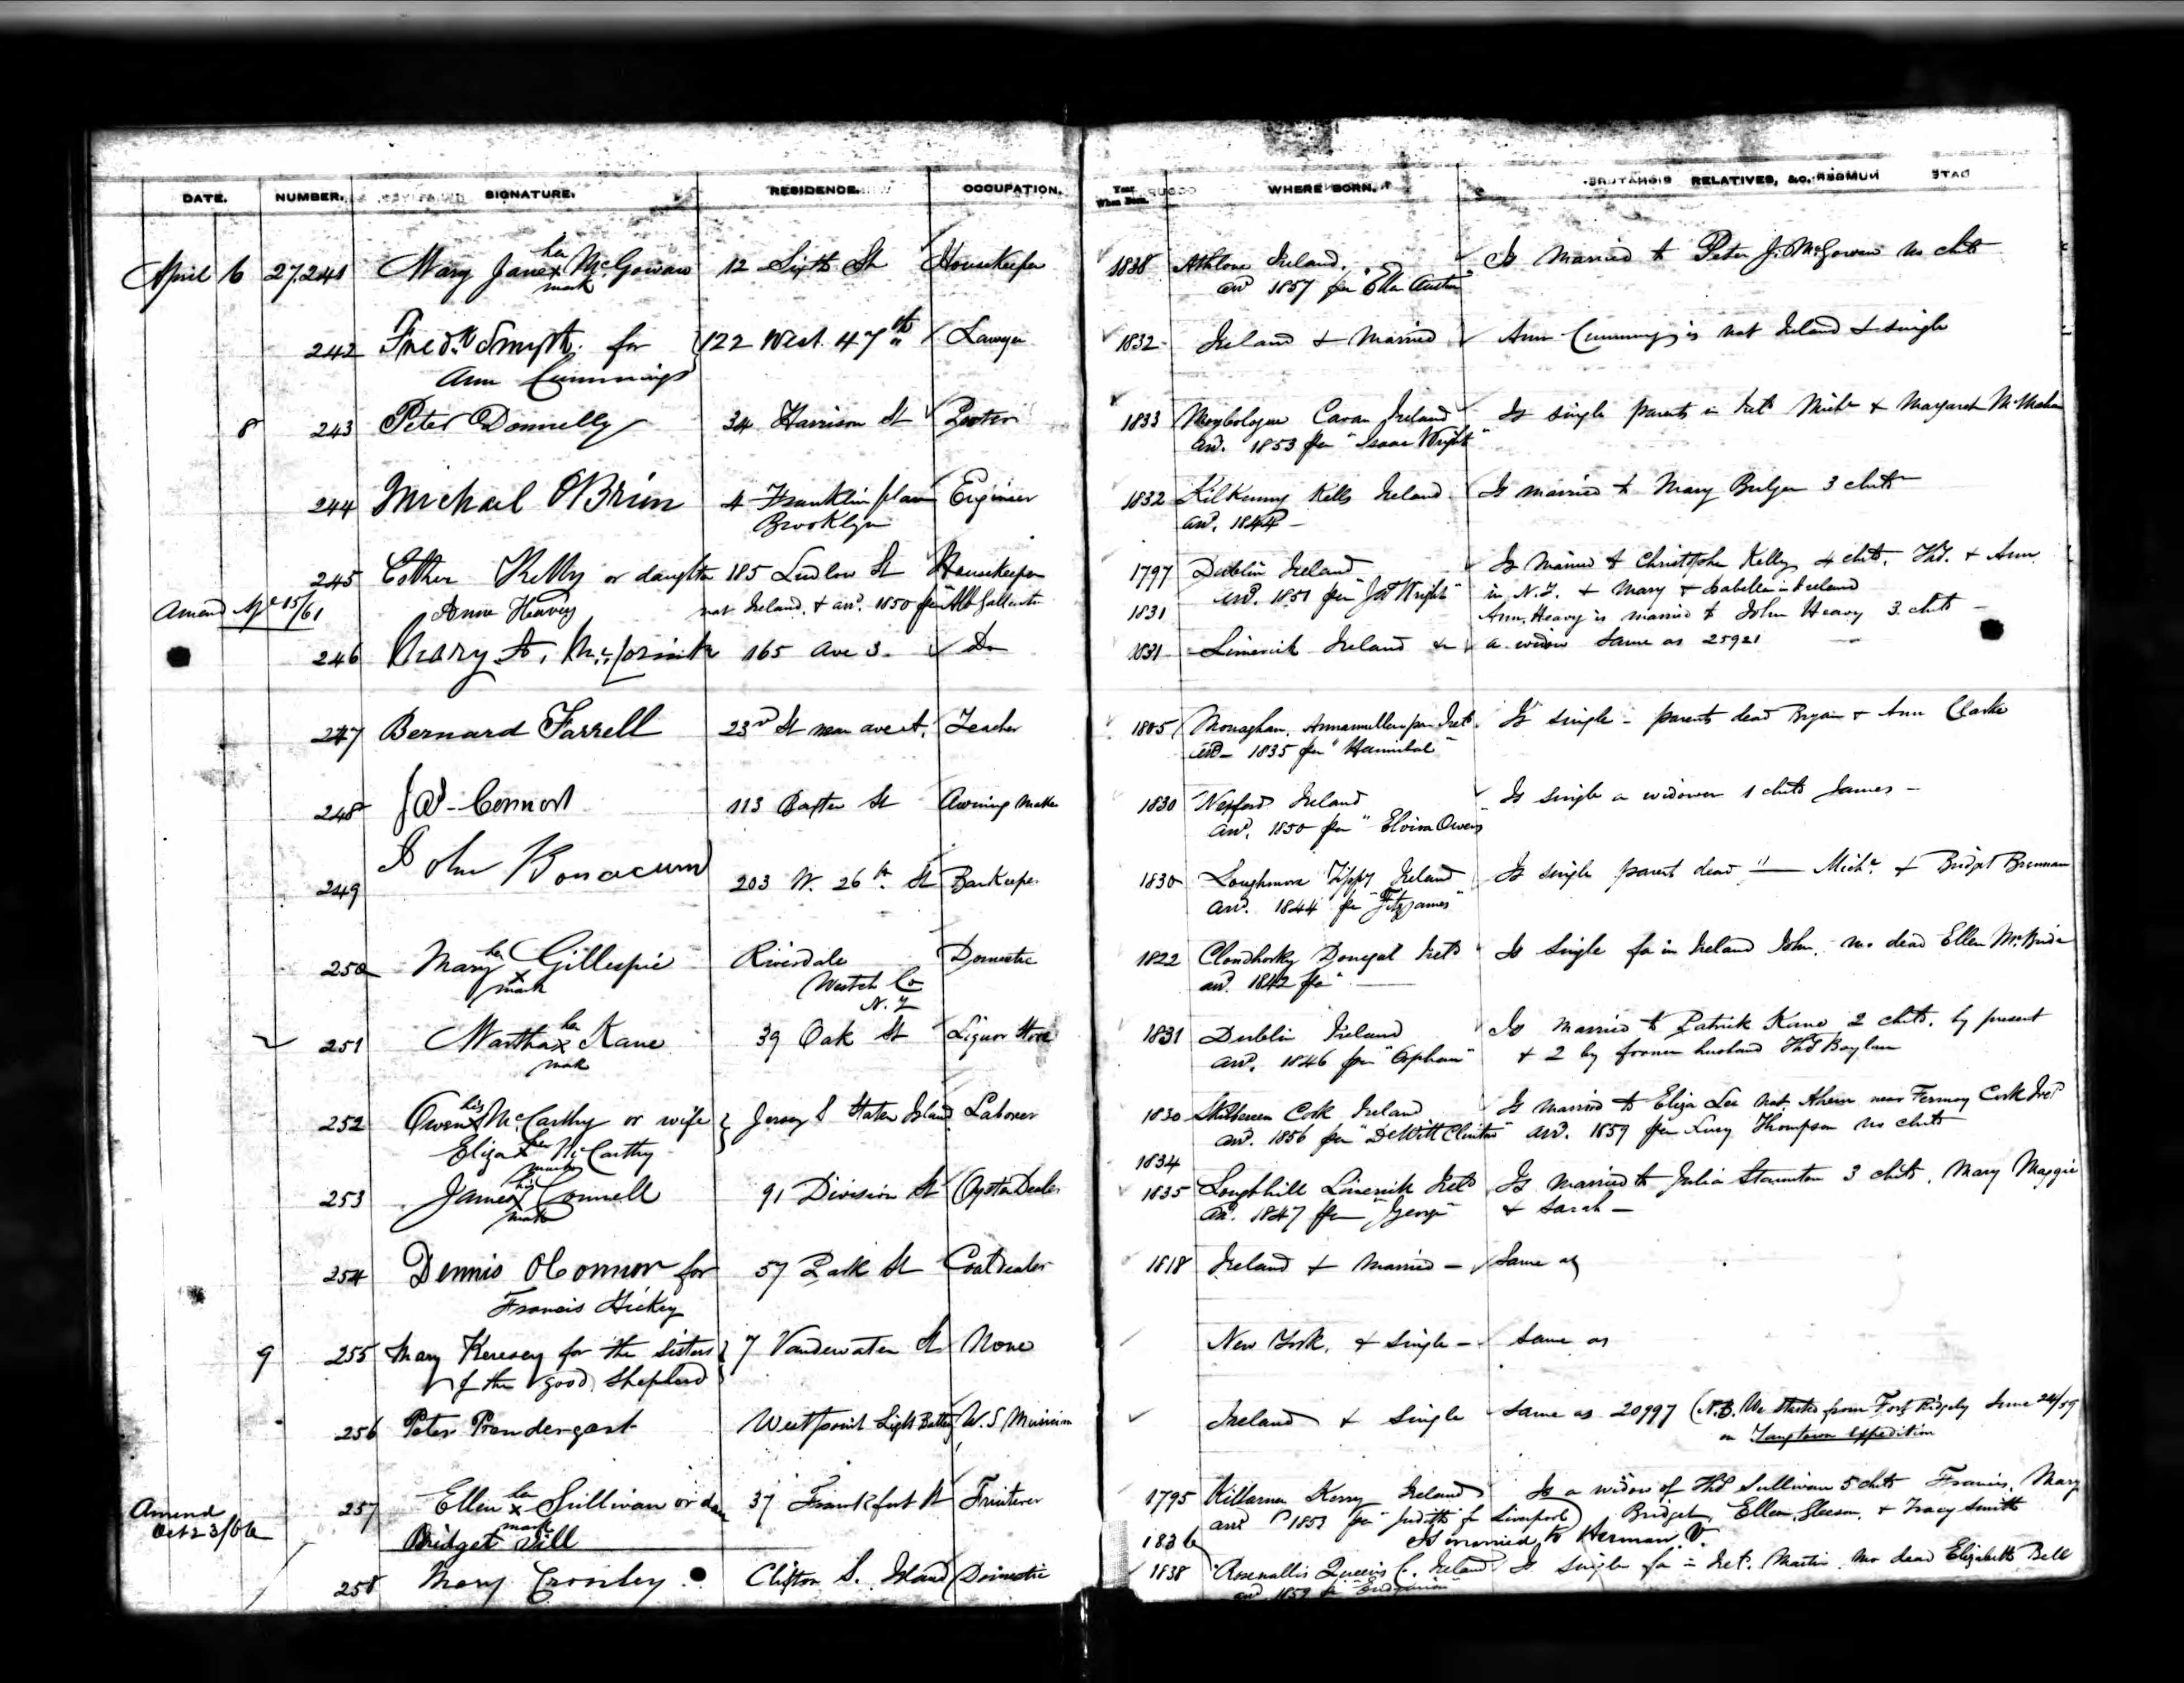 DATE. NUMBER. SIGNATURE. RESIDENCE. OCCUPATION. Year When Born. WHERE BORN. RELATIVES, &C.
April 6 27,241 Mary Jane her x mark McGowan 12 Sixth St Housekeeper 1838 Athlone Ireland. Is Married to Peter J. McGowan no chdn
arrd 1857 per "Ella Austin"
242 Fredk Smyth for 122 West 47th Lawyer 1832 Ireland & Married Ann Cummings is nat Ireland & single
Ann Cummings
8 243 Peter Donnelly 34 Harrison St Porter 1833 Moybologue Cavan Ireland Is single parents in Ireld Michl & Margaret McMahon
arrd. 1853 per "Isaac Wright"
244 Michael OBrien 4 Franklin place Engineer 1832 Kilkenny Kells Ireland Is married to Mary Bulger 3 chdn
Brooklyn arrd. 1844 —
245 Esther Kelly or daughter 185 Ludlow St Housekeeper 1797 Dublin Ireland Is Married to Christopher Kelly 4 chdn. Thos. & Ann
arrd. 1851 per "Jas Wright" in N.Y. & Mary & Isabella in Ireland
Amend Apl 15/61 Anne Heavey nat Ireland. & arrd. 1850 per Alb Gallatin 1831 Ann Heavy is married to John Heavy 3 chdn —
246 Mary A. McCormick 165 Ave 3. Do 1831 Limerick Ireland & a widow same as 25921
247 Bernard Farrell 23rd St near ave A. Teacher 1805 Monaghan, Ireld. Is single — parents dead Bryan & Ann Clarke
arrd — 1835 per "Hannibal"
248 Jas Connors 113 Baxter St Awning Maker 1830 Wexford Ireland Is single a widower 1 chd James —
arrd. 1850 per "Elvira Owen"
249 John Bonacum 203 W. 26th St Barkeeper 1830 Loughmore Tippy Ireland Is single parents dead Michl & Bridget Brennan
arrd. 1844 per "Fitzjames"
250 Mary her x mark Gillespie Riverdale Domestic 1822 Donegal Ireld Is Single fa in Ireland John. mo dead Ellen McBride
Westch Co arrd. 1842 per "
N.Y
251 Martha her x mark Kane 39 Oak St Liquor Store 1831 Dublin Ireland Is Married to Patrick Kane 2 chdn. by present
arrd. 1846 per "Orphan" & 2 by former husband Thos Boylan
252 Owen his x McCarthy or wife Jersey S Staten Island Laborer 1830 Skibbereen Cork Ireland Is married to Eliza Lee nat. Ahern near Fermoy Cork Ireld
arrd. 1856 per "DeWitt Clinton" arrd. 1859 per Lucy Thompson no chdn
Eliza her x mark McCarthy 1834
253 James his x mark Connell 91 Division St Oyster Dealer 1835 Loughhill Limerick Ireld Is married to Julia Staunton 3 chdn. Mary Maggie
arrd. 1847 per "George" & Sarah —
254 Dennis OConnor for 57 Park St Coal dealer 1818 Ireland & Married — Same as
Francis Hickey
9 255 Mary Keresey for the Sisters 7 Vandewater St None New York. & Single — Same as
of the good Shepherd
256 Peter Prendergast Westpoint Light Battery U.S Musician Ireland & Single Same as 20997 (N.B. We started from Fort Ridgely June 24/59
on Yanctown expedition
257 Ellen her x mark Sullivan or dau 37 Frankfort St Fruiterer 1795 Killarney Kerry Ireland Is a widow of Thos Sullivan 5 chdn Francis, Mary
arrd 1853 per Judith fr Liverpool Bridget, Ellen Gleeson, & Tracy Smith
Amend Oct 23/66 Bridget Vill 1836 Is married to Herman V.
258 Mary Crossley Clifton S. Island Domestic 1838 Rosenallis Queens C. Ireland Is single fa in Ireld. Martin mo dead Elizabeth Bell
arrd 1859 per